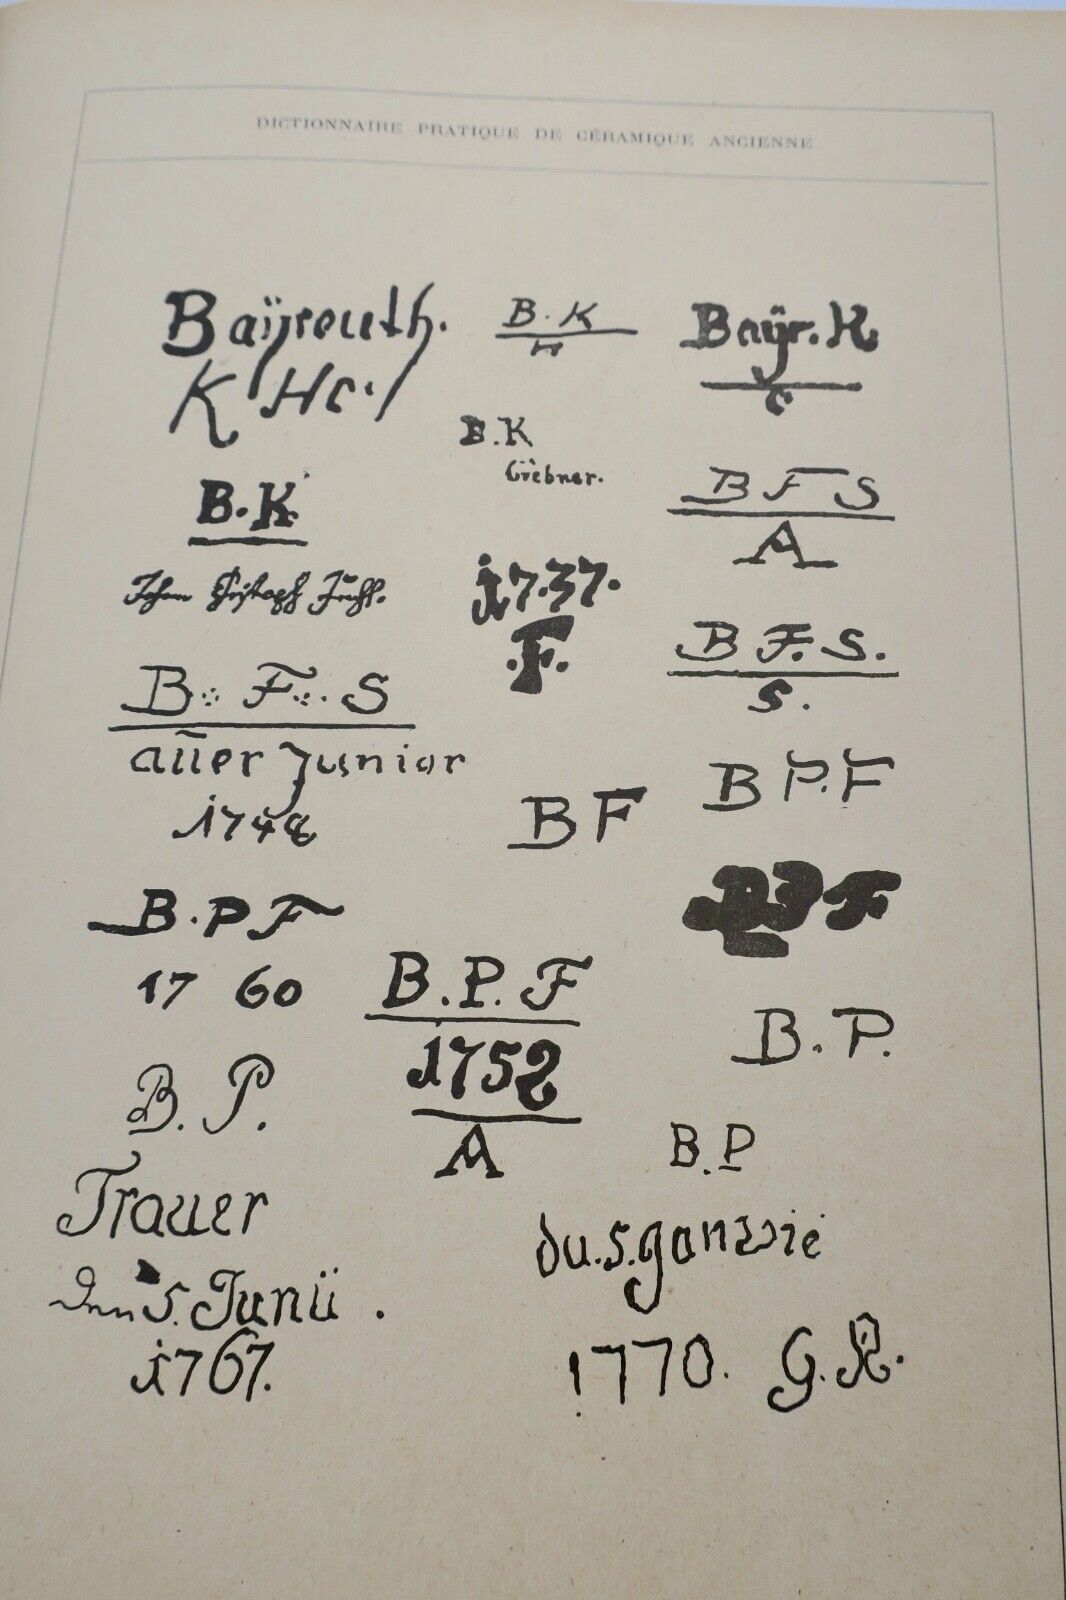 DICTIONNAIRE PRATIQUE DE CÉRAMIQUE ANCIENNE
Baÿreuth.
K Hc./
B. K
H
Baÿr. K
C
B. K
Grebner.
B. K.
Johann Christoph
B F S
A
1737.
.F.
B F. S.
S.
B F S
aüer Junior
1748
B P. F
B F
B. P F
17 60
B. P. F
1752
A
B P F
B. P.
B. P.
B. P
Trauer
den 5. Junü .
1767.
du. 5.
1770. G. R.